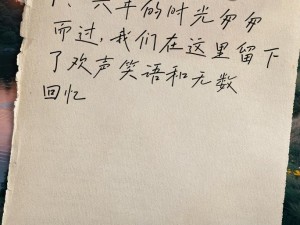 1、六年的时光匆匆
而过，我们在这里留下
了欢声笑语和无数
回忆